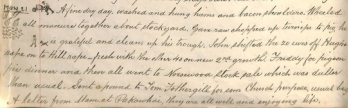 May 21 A fine day, washed and hung hams and bacon shoulders. Wheeled
all manure together about stockyard. Gave ram chopped up turnips to pig, he
is grateful and cleans up his trough. John shifted the 20 ewes off Huge's
rape on to Hill rape, fresh with the others on new 2nd growth. Freddy for pigeon
pie dinner and then all went to Norewood Stock sale which was duller
than usual. Sent a pound to Tom Fothergill for some Church purpose, usual
A letter from Mam at Pokawhai, they are all well and enjoying life.